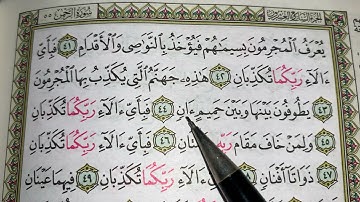 سورة الرحمن ٥٥
يُعْرَفُ الْمُجْرِمُونَ بِسِيمَاهُمْ فَيُؤْخَذُ بِالنَّوَاصِي وَالْأَقْدَامِ ٤١ فَبِأَيِّ
ءَالَاءِ رَبِّكُمَا تُكَذِّبَانِ ٤٢ هَٰذِهِ جَهَنَّمُ الَّتِي يُكَذِّبُ بِهَا الْمُجْرِمُونَ
٤٣ يَطُوفُونَ بَيْنَهَا وَبَيْنَ حَمِيمٍ ءَانٍ ٤٤ فَبِأَيِّ ءَالَاءِ رَبِّكُمَا تُكَذِّبَانِ
٤٥ وَلِمَنْ خَافَ مَقَامَ ٤٦ فَبِأَيِّ ءَالَاءِ رَبِّكُمَا تُكَذِّبَانِ
٤٧ ذَوَاتَا أَفْنَانٍ ءَالَاءِ رَبِّكُمَا تُكَذِّبَانِ ٤٩ فِيهِمَا عَيْنَانِ